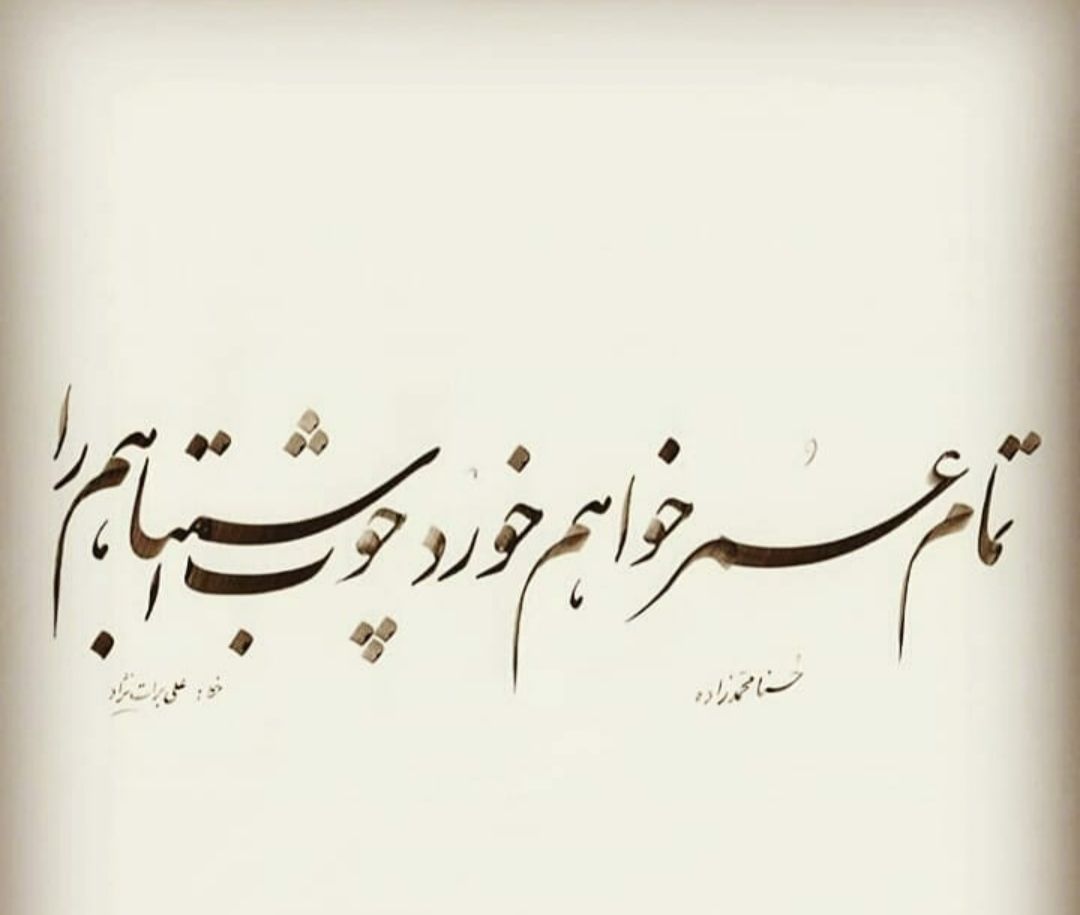 تمام عمر خواهم خورد چوب اشتباهم را
حسنا محمدزاده
خط: علی برات نژاد